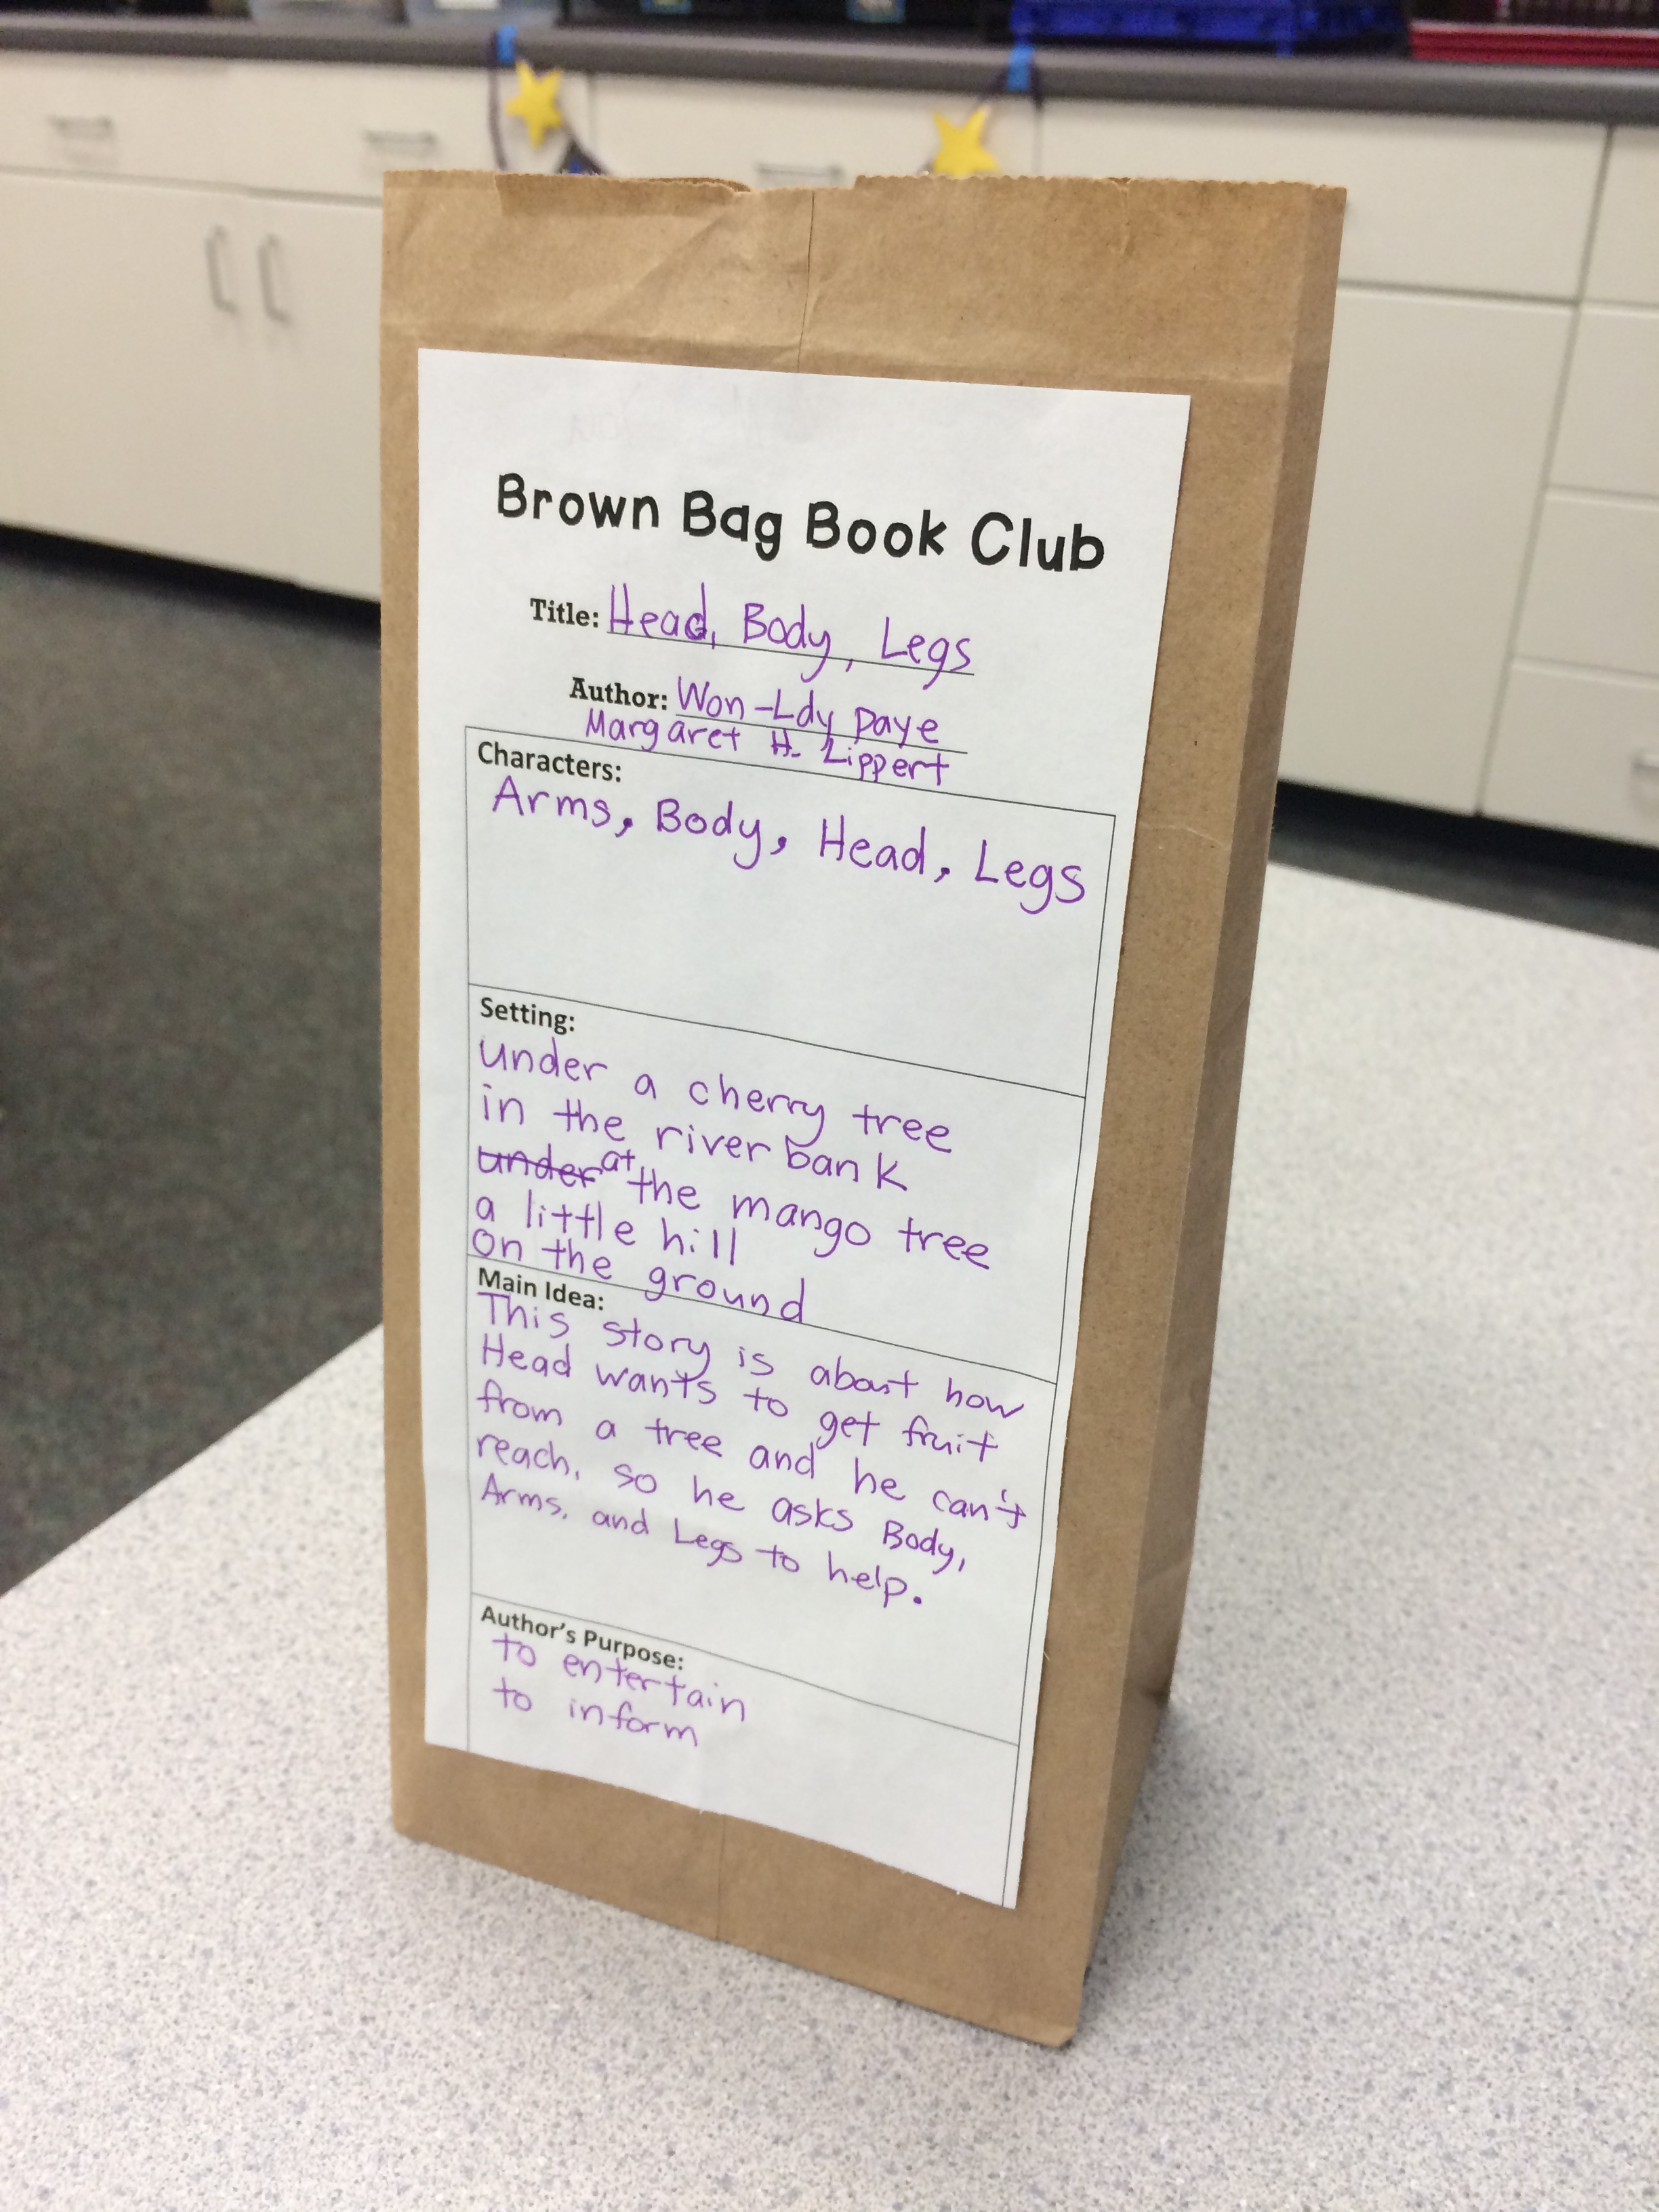 Brown Bag Book Club
Title: Head, Body, Legs
Author: Won-Ldy Paye
Margaret H. Lippert
Characters:
Arms, Body, Head, Legs
Setting:
under a cherry tree
in the river bank
under at the mango tree
a little hill
on the ground
Main Idea:
This story is about how
Head wants to get fruit
from a tree and he can't
reach, so he asks Body,
Arms, and Legs to help.
Author's Purpose:
to entertain
to inform